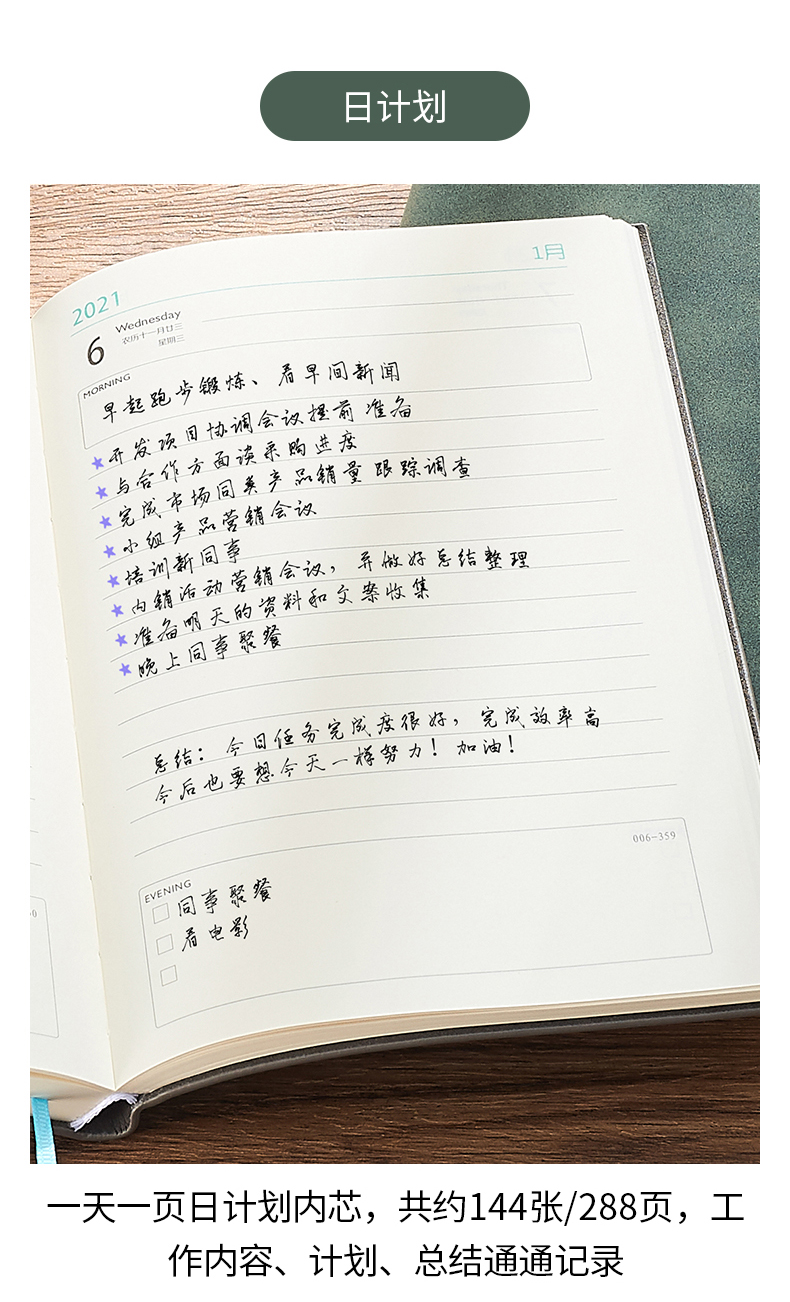 日计划
1月
2021
Wednesday
6
农历十一月廿三
星期三
MORNING
早起跑步锻炼、看早间新闻
开发项目协调会议提前准备
与合作方面谈采购进度
完成市场同类产品销量跟踪调查
小组产品营销会议
培训新同事
内销活动营销会议，并做好总结整理
准备明天的资料和文案收集
晚上同事聚餐
总结：今日任务完成度很好，完成效率高
今后也要想今天一样努力！加油！
006-359
EVENING
同事聚餐
看电影
一天一页日计划内芯，共约144张/288页，工
作内容、计划、总结通通记录